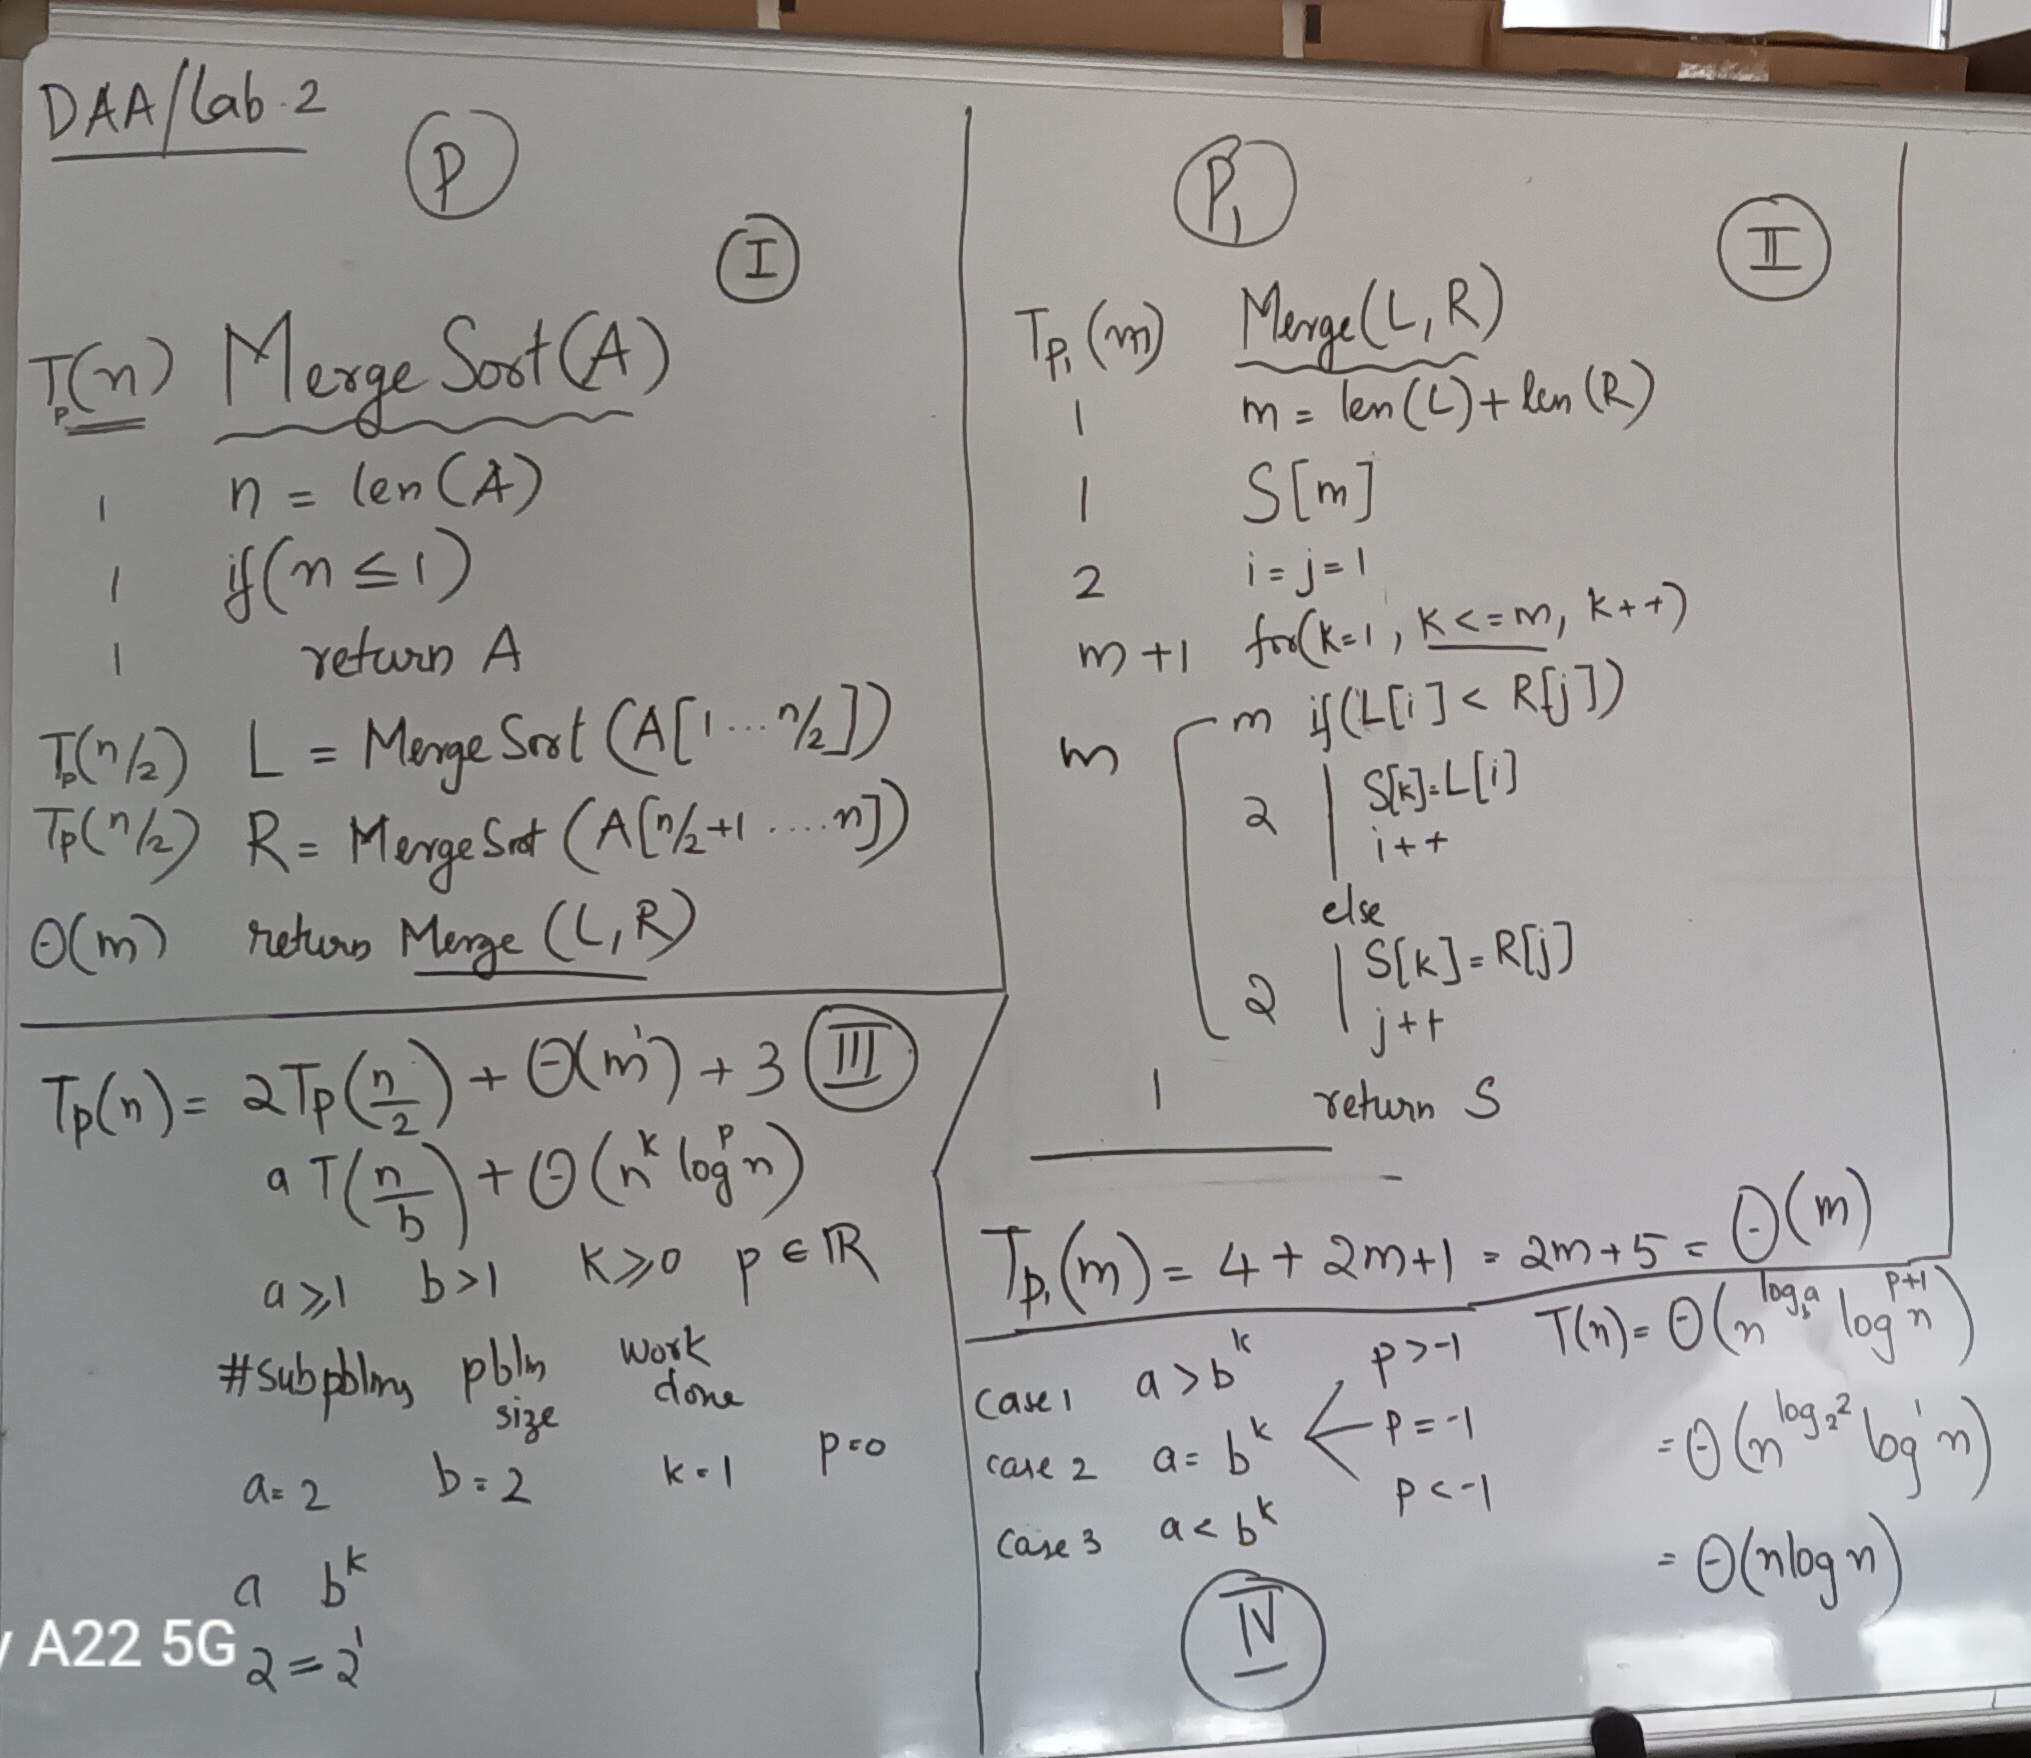 DAA/Lab-2
P
I
Tp(n) MergeSort(A)
1 n = len(A)
1 if(n ≤ 1)
1 return A
Tp(n/2) L = MergeSort(A[1...n/2])
Tp(n/2) R = MergeSort(A[n/2+1....n])
Θ(m) return Merge(L,R)
P₁
II
Tp₁(m) Merge(L,R)
1 m = len(L)+len(R)
1 S[m]
2 i=j=1
m+1 for(k=1, k<=m, k++)
m m if(L[i] < R[j])
2 S[k]=L[i]
i++
else
2 S[k]=R[j]
j++
1 return S
Tp₁(m) = 4 + 2m+1 = 2m+5 = Θ(m)
III
Tp(n) = 2Tp(n/2) + Θ(m¹) + 3
aT(n/b) + Θ(n^k log^p n)
a⩾1 b>1 k⩾0 p∈ℝ
#subpblms pblm size work done
a=2 b=2 k=1 p=0
a b^k
2=2¹
case 1 a>b^k
case 2 a=b^k
case 3 a<b^k
p>-1
p=-1
p<-1
IV
T(n)=Θ(n^log_b a log^p+1 n)
=Θ(n^log₂2 log¹n)
=Θ(nlogn)
A22 5G